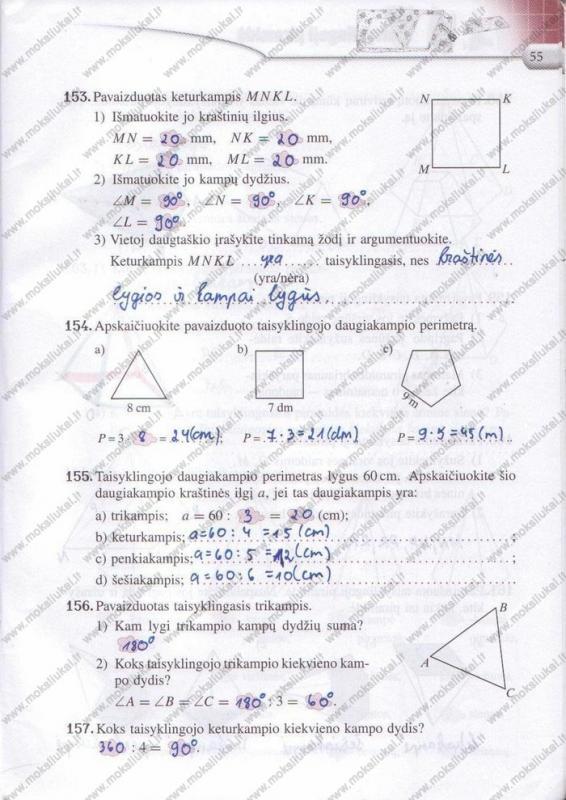 55
153. Pavaizduotas keturkampis MNKL.
1) Išmatuokite jo kraštinių ilgius.
MN = 20 mm, NK = 20 mm,
KL = 20 mm, ML = 20 mm.
N K
M L
2) Išmatuokite jo kampų dydžius.
∠M = 90°, ∠N = 90°, ∠K = 90°,
∠L = 90°.
3) Vietoj daugtaškio įrašykite tinkamą žodį ir argumentuokite.
Keturkampis MNKL ... yra ... taisyklingasis, nes kraštinės
(yra/nėra)
lygios ir kampai lygūs.
154. Apskaičiuokite pavaizduoto taisyklingojo daugiakampio perimetrą.
a) b) c)
8 cm 7 dm 9 m
P = 3 · 8 = 24(cm); P = 7 · 3 = 21(dm) P = 9 · 5 = 45(m)
155. Taisyklingojo daugiakampio perimetras lygus 60 cm. Apskaičiuokite šio
daugiakampio kraštinės ilgį a, jei tas daugiakampis yra:
a) trikampis; a = 60 : 3 = 20 (cm);
b) keturkampis; a=60 : 4 = 15 (cm) ;
c) penkiakampis; a=60 : 5 = 12(cm) ;
d) šešiakampis; a = 60 : 6 = 10(cm)
156. Pavaizduotas taisyklingasis trikampis.
1) Kam lygi trikampio kampų dydžių suma?
180°
2) Koks taisyklingojo trikampio kiekvieno kam-
po dydis?
∠A = ∠B = ∠C = 180° : 3 = 60°.
B
A
C
157. Koks taisyklingojo keturkampio kiekvieno kampo dydis?
360 : 4 = 90°.
www.mokaliukai.lt